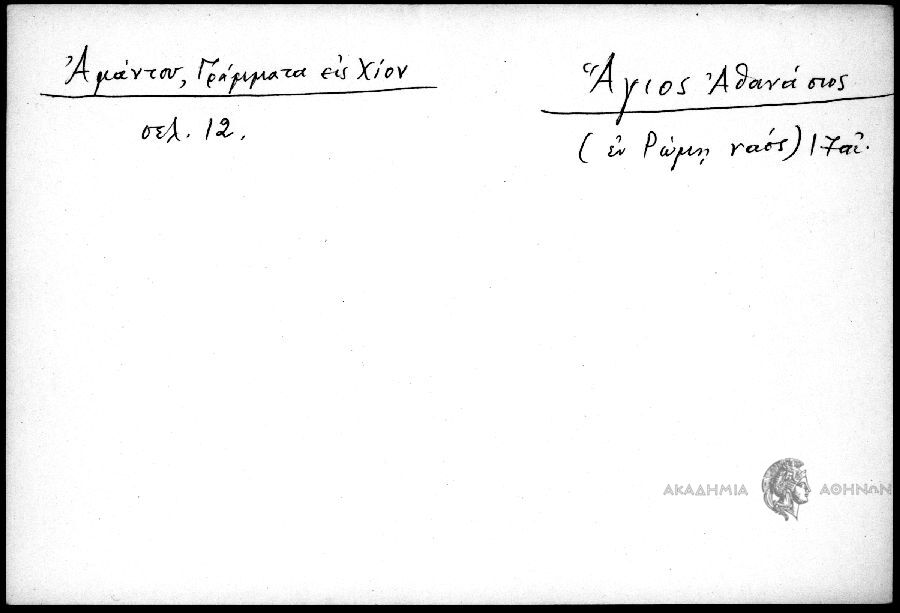 Ἀμάντου, Γράμματα εἰς Χίον
σελ. 12.
Ἅγιος Ἀθανάσιος
(ἐν Ῥώμῃ ναός) 17 αἰ.
ΑΚΑΔΗΜΙΑ ΑΘΗΝΩΝ